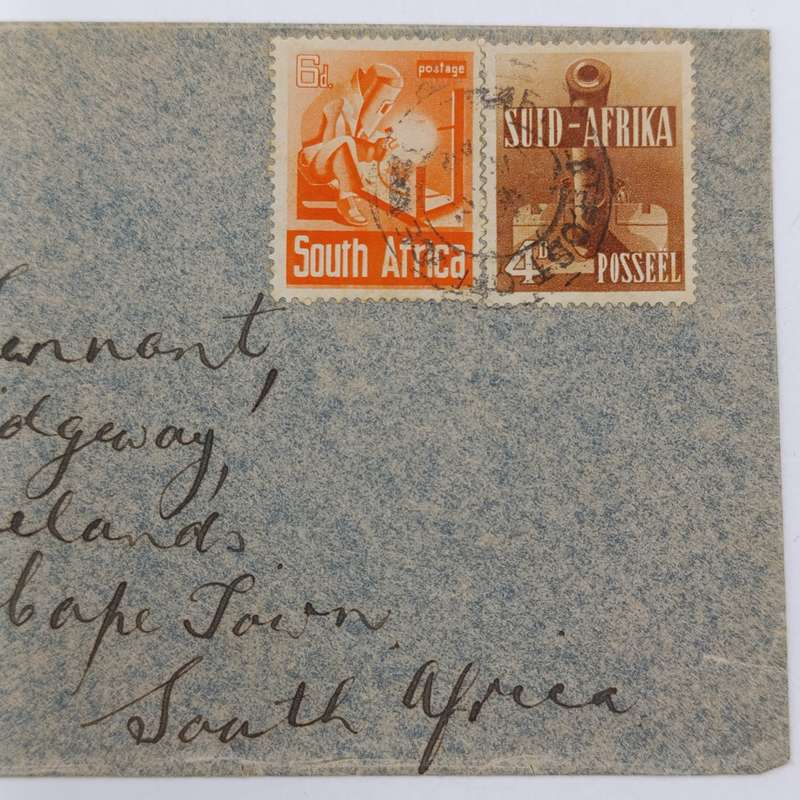 6d. postage
South Africa
SUID-AFRIKA
4D POSSEËL
annant,
idgeway,
elands
Cape Town
South Africa